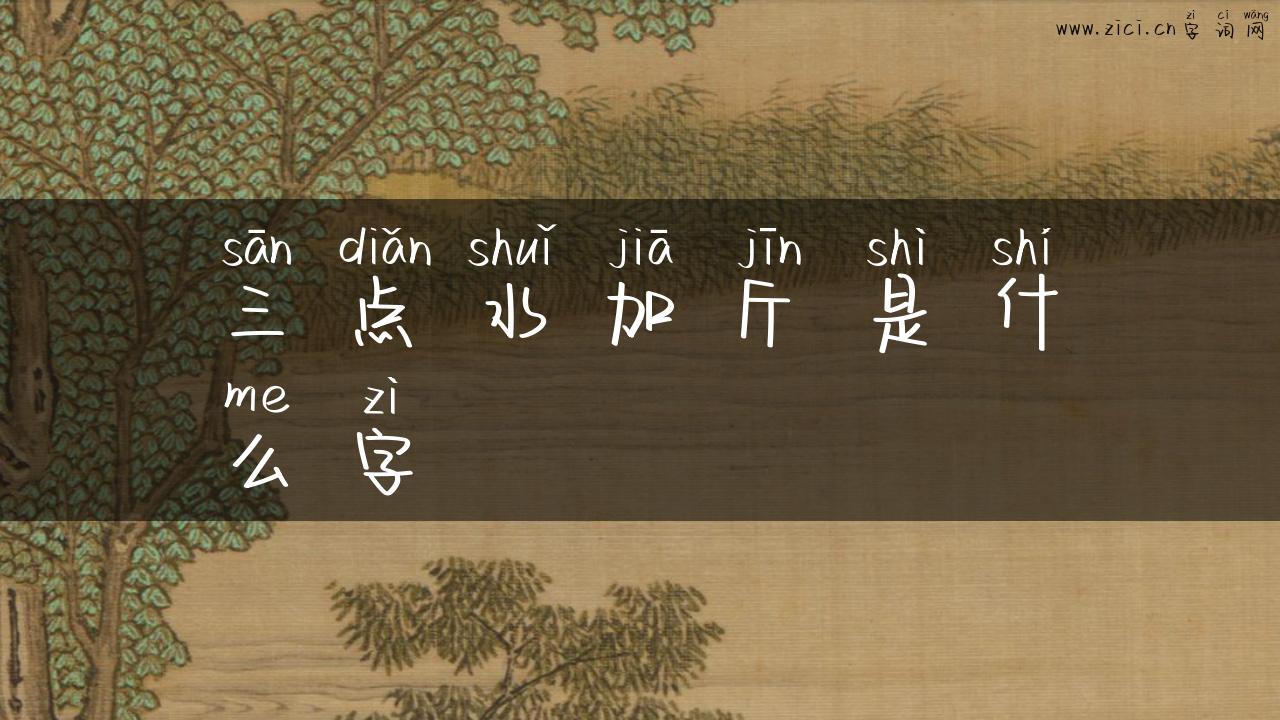 zì cí wǎng
www.zici.cn 字词网
sān diǎn shuǐ jiā jīn shì shí
三点水加斤是什
me zì
么字